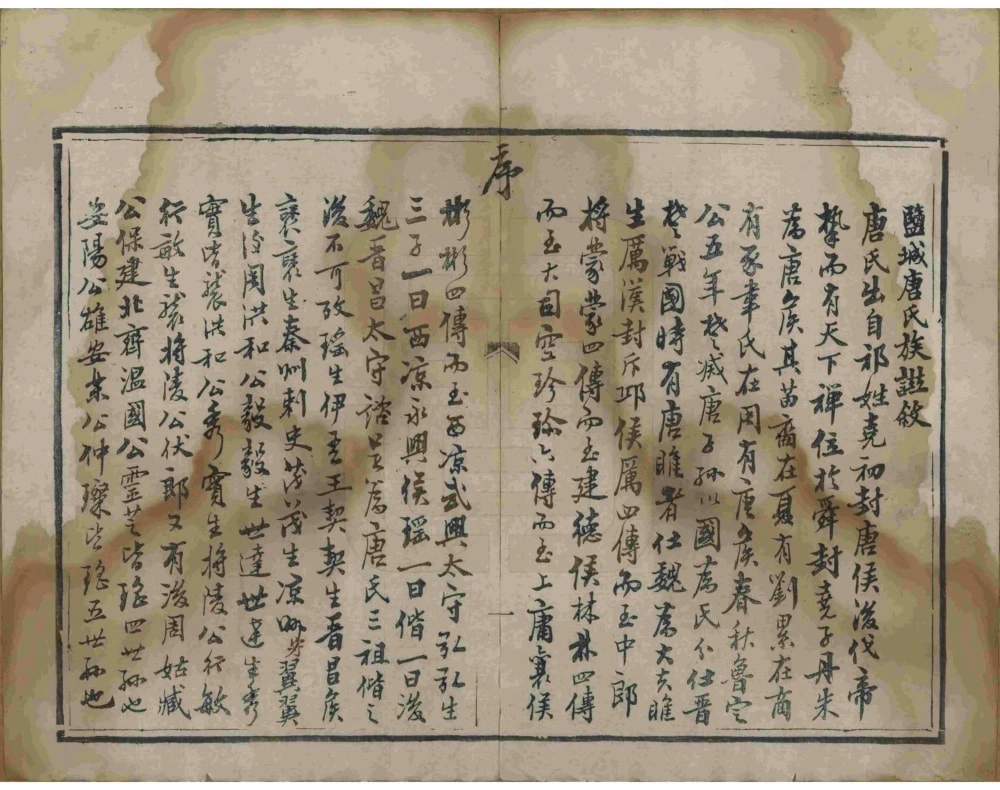 鹽城唐氏族譜敘
唐氏出自祁姓堯初封唐侯後代帝
摯而有天下禪位於舜封堯子丹朱
為唐侯其苗裔在夏有劉累在商
有豕韋氏在周有唐侯春秋魯定
公五年楚滅唐子孫以國為氏介仕晉
楚戰國時有唐雎者仕魏為大夫雎
生厲漢封斥邱侯厲四傳而至中郎
將蒙蒙四傳而至建德侯林林四傳
而至大司空珍珍六傳而至上庸襄侯
序
一
彬彬四傳而至西涼武興太守弘弘生
三子一曰西涼永興侯瑤一曰偕一曰浚
魏晉昌太守諮是為唐氏三祖偕之
後不可考瑤生伊吾王契契生晉昌侯
褒褒生秦州刺史茂茂生涼州芳翼翼
生後周洪和公毅毅生世達世達生秀
寶皆襲洪和公秀寶生將陵公行敏
行敏生襲將陵公伏郎又有後周姑臧
公保建北齊溫國公靈芝皆瑤四世孫也
姿陽公雄安東公仲璨皆瑤五世孫也